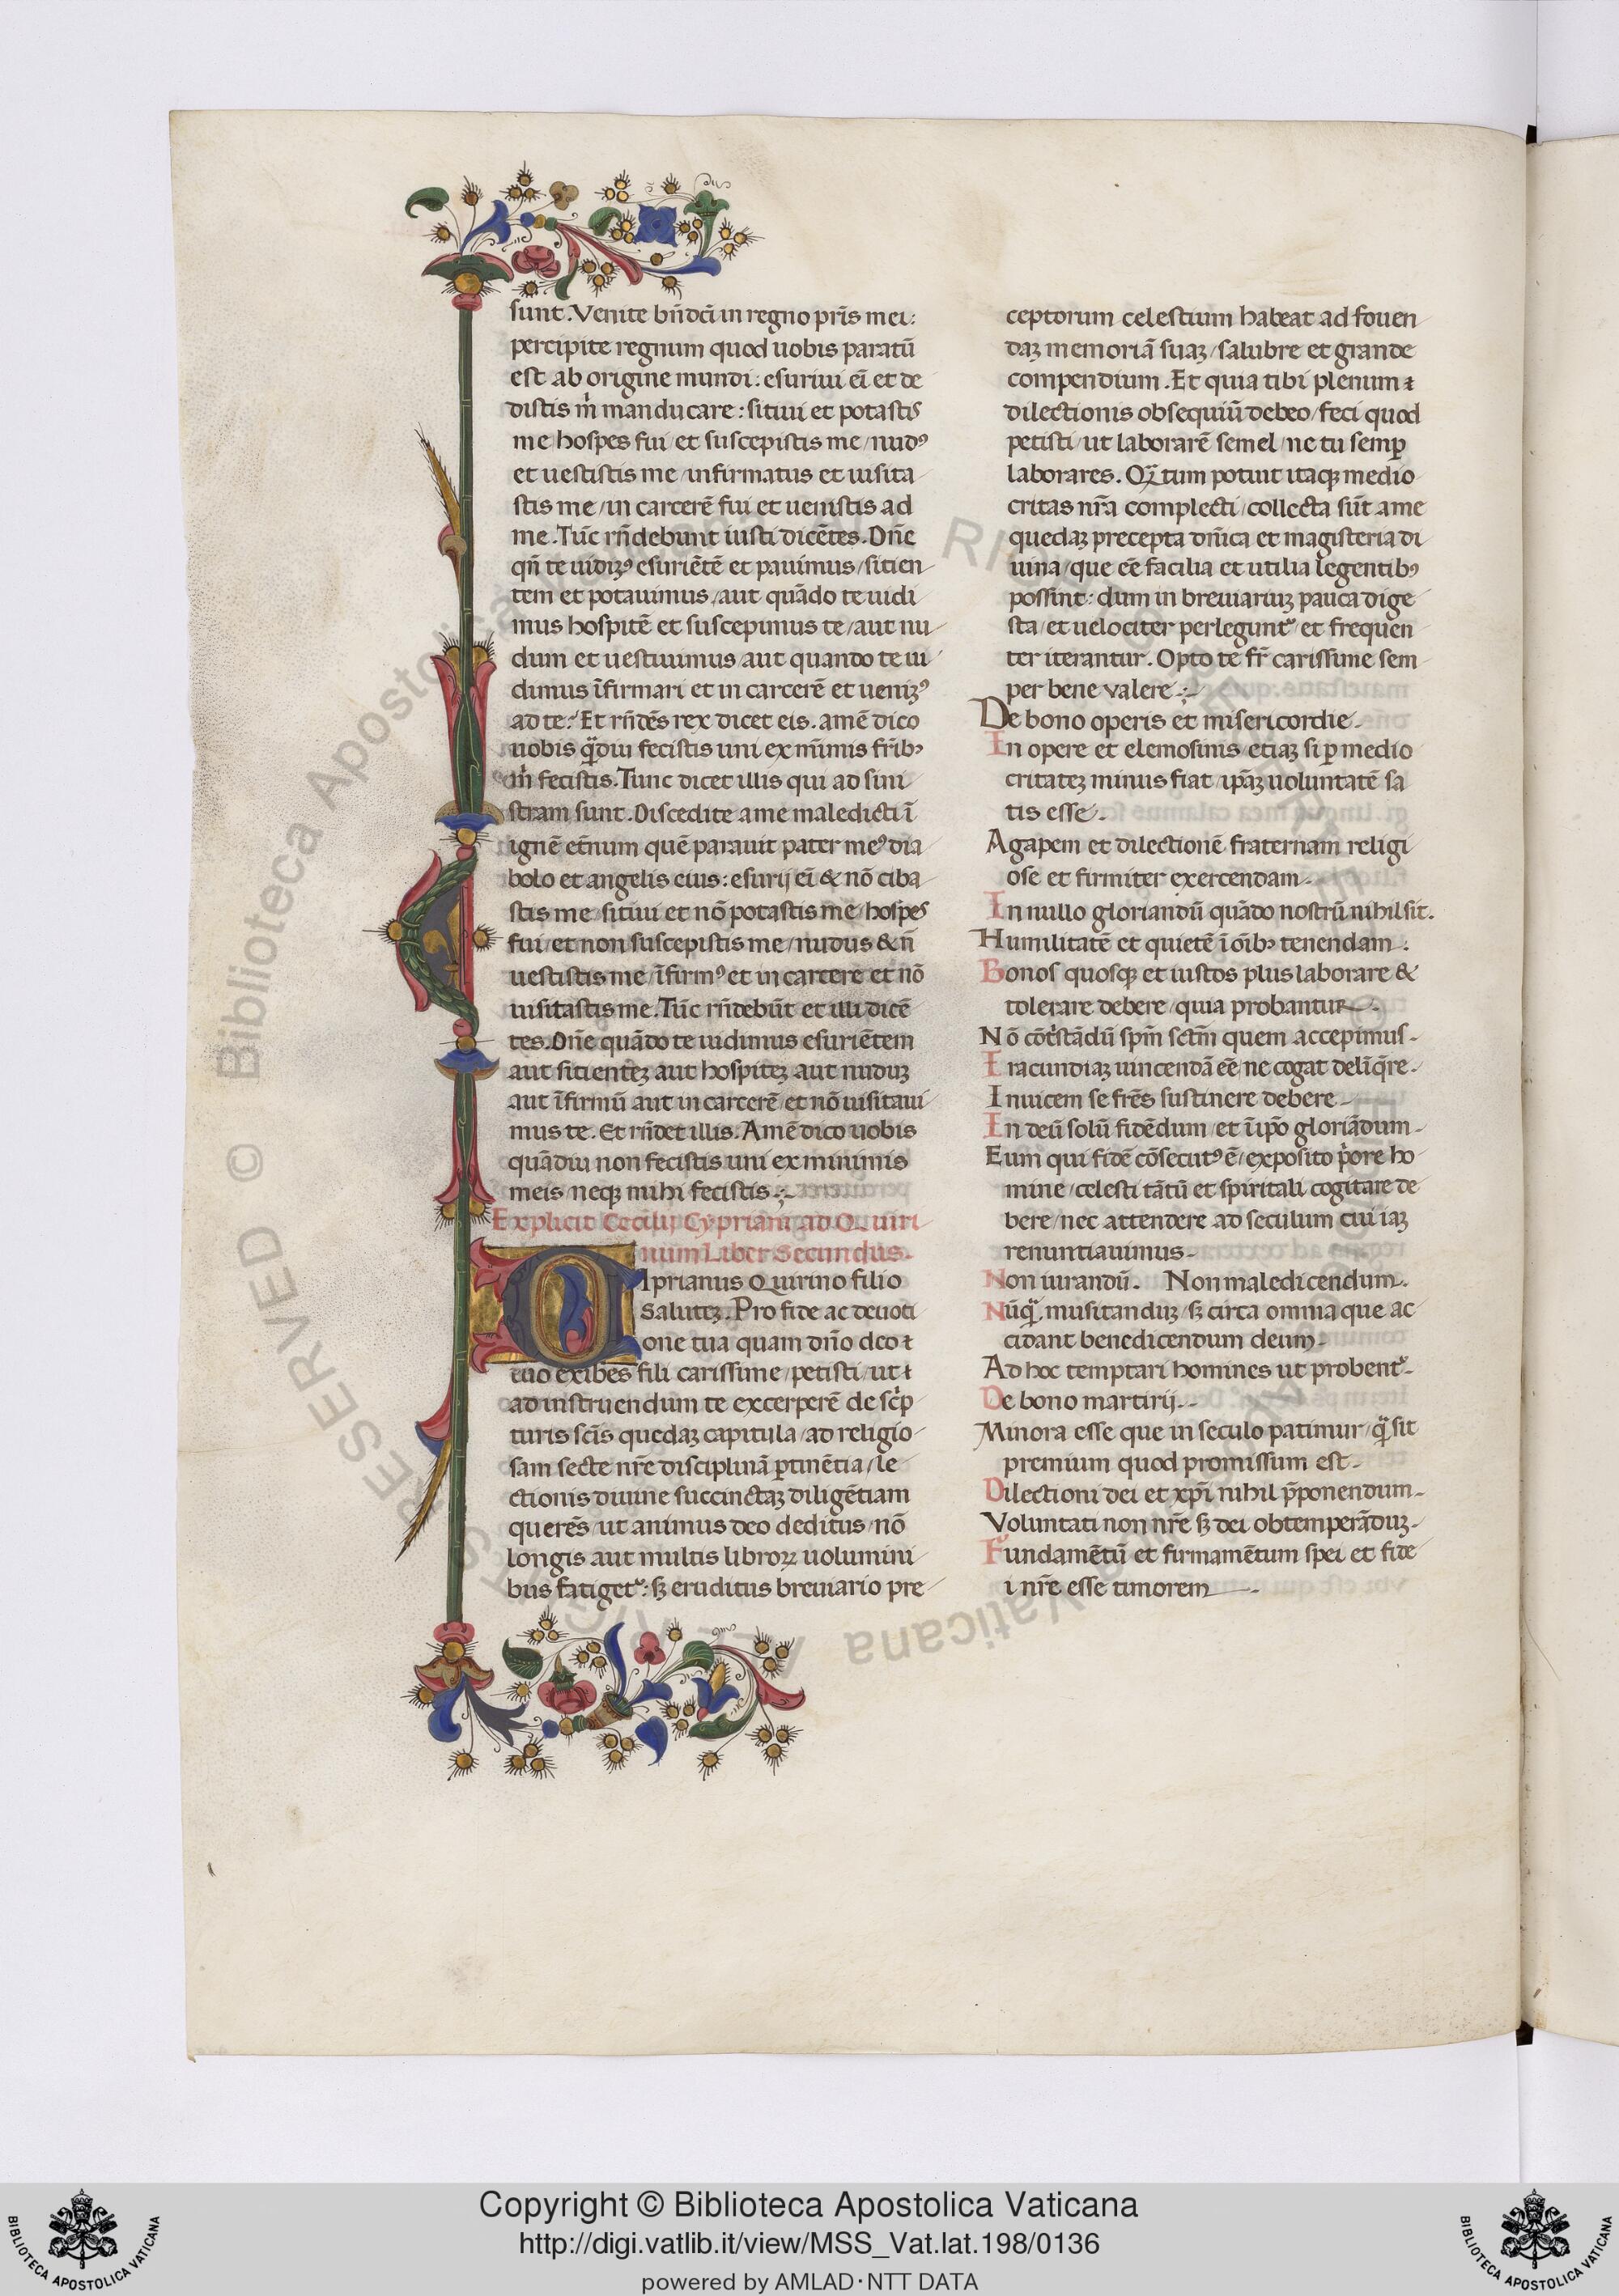 sunt. Venite bn̄dcī in regno pr̄is mei:
percipite regnum quod uobis paratū
est ab origine mundi: esuriui eī et de
distis m̄ manducare: sitiui et potastis
me/hospes fui/et suscepistis me/nudꝰ
et uestistis me/infirmatus et uisita
stis me/in carcerē fui et uenistis ad
me. Tūc rn̄debunt iusti dicētes. Dn̄e
qn̄ te uidizꝰ esuriētē et pauimus/sitien
tem et potauimus/aut quādo te uidi
mus hospitē et suscepimus te/aut nu
dum et uestiuimus/aut quando te ui
dimus īfirmari et in carcerē et uenizꝰ
ad te: Et rn̄dēs rex dicet eis. amē dico
uobis q̄diu fecistis uni ex minimis fr̄ibꝫ
m̄ fecistis. Tunc dicet illis qui ad sini
stram sunt. Discedite a me maledicti ī
ignē et̄num quē parauit pater meꝰ dia
bolo et angelis eius: esurij eī & nō ciba
stis me/sitiui et nō potastis me/hospes
fui/et non suscepistis me/nudus & n̄
uestistis me/īfirmꝰ et in carcere et nō
uisitastis me. Tūc rn̄debūt et illi dicē
tes. Dn̄e quādo te uidimus esuriētem
aut sitientez aut hospitez aut nuduz
aut īfirmū aut in carcerē et nō uisitaui
mus te. Et rn̄det illis. Amē dico uobis
quādiu non fecistis uni ex minimis
meis neqꝫ mihi fecistis.
Explicit Cecilij Cypriani ad Quiri
num Liber Secundus.
CIprianus Quirino filio
Salutez. Pro fide ac deuoti
one tua quam dn̄o deo
tuo exibes fili carissime/petisti/ut
ad instruendum te excerperē de sc̄rip
turis sc̄is quedaz capitula/ad religio
sam secte nr̄e disciplinā ꝑtinētia/le
ctionis diuine succinctaz diligētiam
querēs/ut animus deo deditus/nō
longis aut multis libroꝝ uolumini
bus fatigetᷣ: sꝫ eruditus breuiario pre
ceptorum celestium habeat ad fouen
daz memoriā suaz/salubre et grande
compendium. Et quia tibi plenum
dilectionis obsequiū debeo/feci quod
petisti/ut laborarē semel/ne tu semꝑ
laborares. Qꝫtum potuit itaqꝫ medio
critas nr̄a complecti/collecta sūt a me
quedaz precepta dn̄ica et magisteria di
uina/que eē facilia et utilia legentibꝰ
possint: dum in breuiariuz pauca dige
sta/et uelociter perleguntᷣ et frequen
ter iterantur. Opto te fr̄ carissime sem
per bene valere.
De bono operis et misericordie.
In opere et elemosinis/etiaz si ꝑ medio
critatez minus fiat/ipāz uoluntatē sa
tis esse.
Agapem et dilectionē fraternam religi
ose et firmiter exercendam.
In nullo gloriandū quādo nostrū nihil sit.
Humilitatē et quietē ī oībꝫ tenendam.
Bonos quosqꝫ et iustos plus laborare &
tolerare debere/quia probantur.
Nō cōtristādū spm̄ sctm̄ quem accepimus.
Iracundiaz uincendā eē/ne cogat delīq̄re.
Inuicem se frēs sustinere debere.
In deū solū fidēdum/et ī ipō gloriādum.
Eum qui fidē cōsecutꝰ ē/exposito priore ho
mine/celesti tātū et spiritali cogitare de
bere/nec attendere ad seculum cui iaz
renuntiauimus.
Non iurandū. Non maledicendum.
Nūq̄ musitanduz/sꝫ circa omnia que ac
cidant benedicendum deum.
Ad hoc temptari homines ut probentᷣ.
De bono martirij.
Minora esse que in seculo patimur/q̄ sit
premium quod promissum est.
Dilectioni dei et xp̄i nihil p̄ponendum.
Voluntati non nr̄e sꝫ dei obtemperāduz.
Fundamētū et firmamētum spei et fide
i nr̄e esse timorem
Copyright © Biblioteca Apostolica Vaticana
http://digi.vatlib.it/view/MSS_Vat.lat.198/0136
powered by AMLAD·NTT DATA
BIBLIOTECA APOSTOLICA VATICANA
BIBLIOTECA APOSTOLICA VATICANA